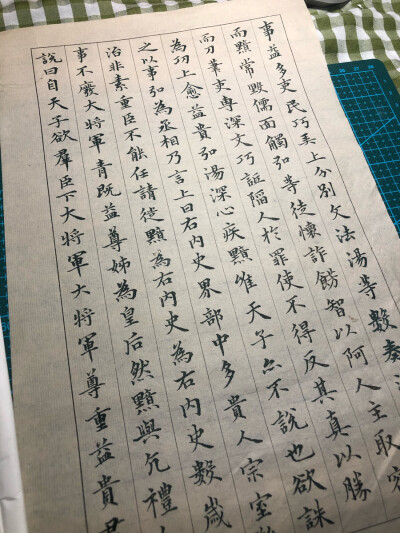 事益多吏民巧弄上分別文法湯等數奏
而黯常毀儒面觸弘等徒懷詐飾智以阿人主取容
而刀筆吏專深文巧詆陷人於罪使不得反其真以勝
為功上愈益貴弘湯深心疾黯惟天子亦不說也欲誅
之以事弘為丞相乃言上曰右內史界部中多貴人宗室
治非素重臣不能任請徙黯為右內史為右內史數歲
事不廢大將軍青既益尊姊為皇后然黯與亢禮人
說曰自天子欲羣臣下大將軍大將軍尊重益貴君